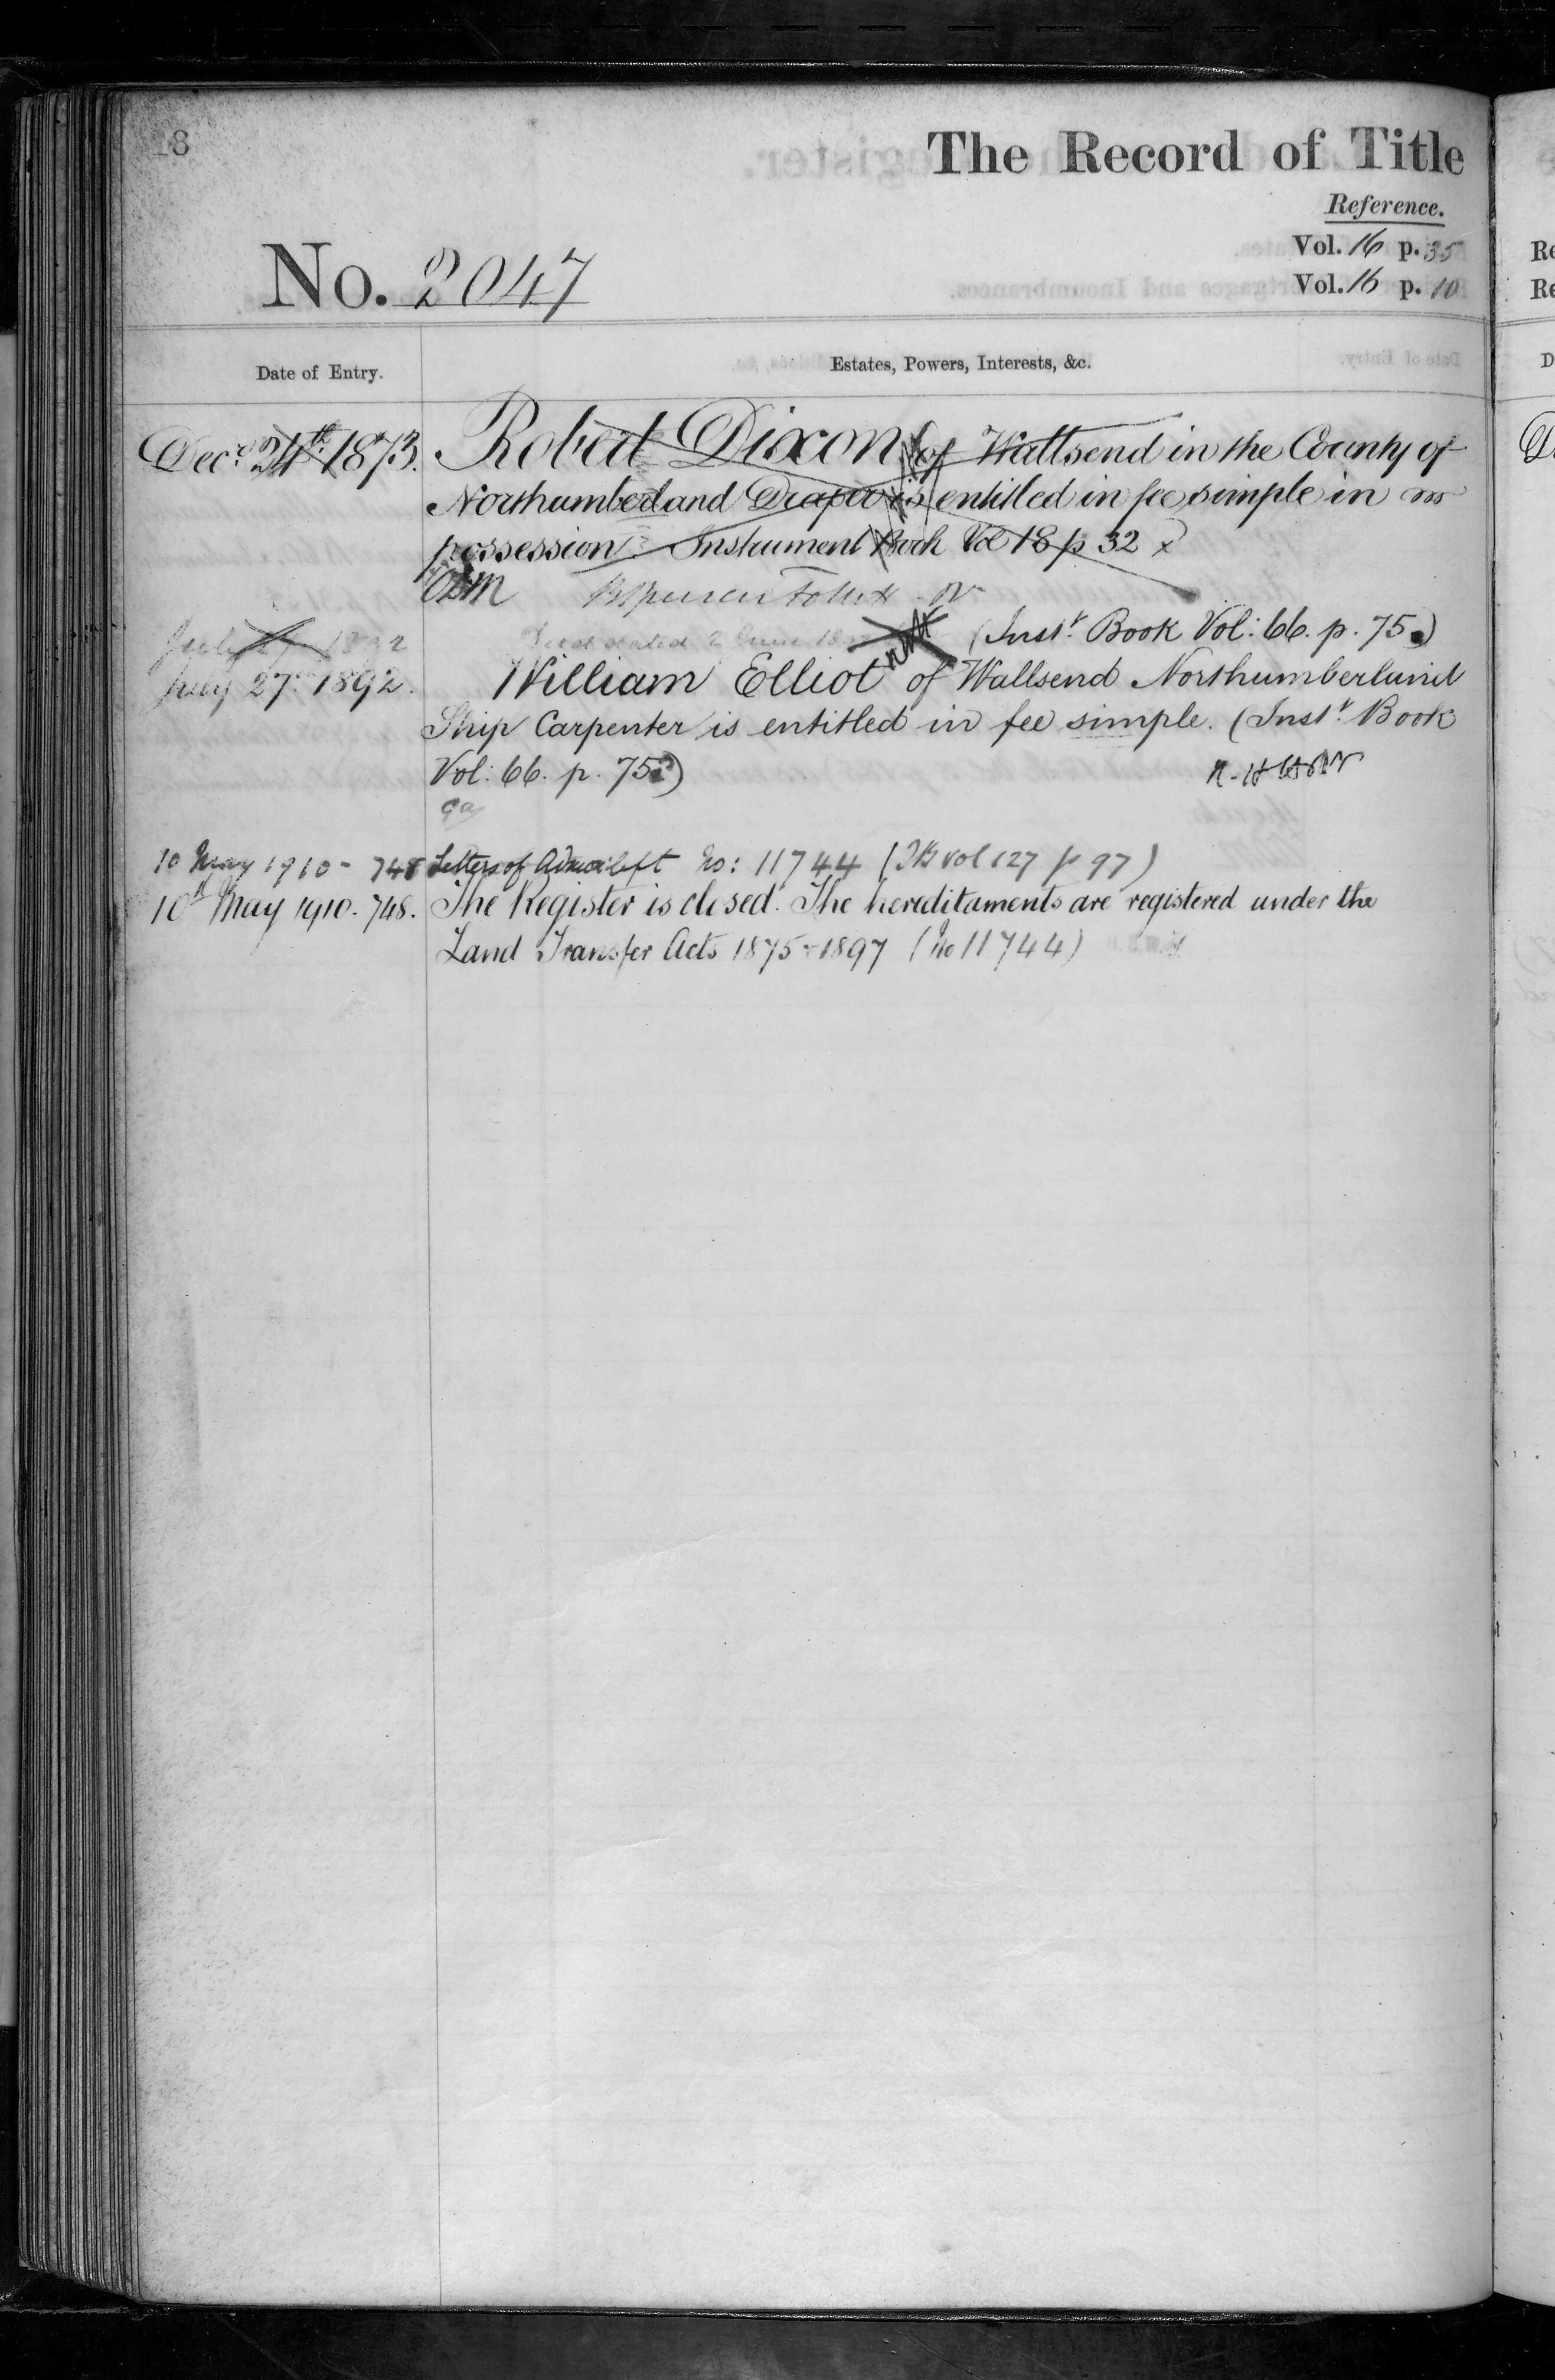 18
The Record of Title
Reference.
Vol. 16 p. 35
No. 2047
Vol. 16 p. 10
Date of Entry.
Estates, Powers, Interests, &c.
Decr. 24th 1873. Robert Dixon of Wallsend in the County of
Northumberland Draper is entitled in fee simple in
possession Instrument Book Vol 18 p 32
July 27 1892 Deed dated 2 June (Instt. Book Vol: 66. p. 75.)
July 27th 1892. William Elliot of Wallsend Northumberland
Ship Carpenter is entitled in fee simple. (Instt. Book
Vol: 66. p. 75.)
10 May 1910 - 748 Letters of Admon left No: 11744 (IB vol 127 p 97)
10th May 1910. 748. The Register is closed. The hereditaments are registered under the
Land Transfer Acts 1875 & 1897 (No 11744)
Re
Re
D